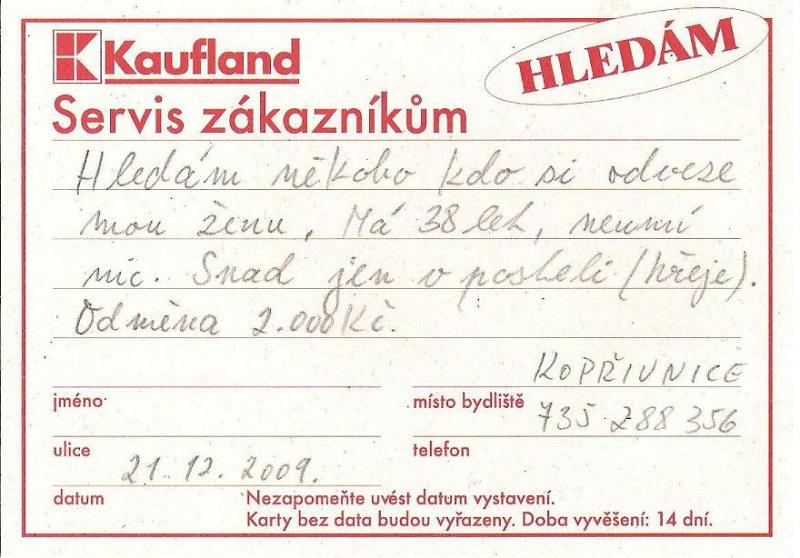 Kaufland
HLEDÁM
Servis zákazníkům
Hledám někoho kdo si odveze
mou ženu. Má 38 let, neumí
nic. Snad jen v posteli (hřeje).
Odměna 2.000 Kč.
KOPŘIVNICE
jméno
místo bydliště
735 288 356
ulice
telefon
21. 12. 2009.
datum
Nezapomeňte uvést datum vystavení.
Karty bez data budou vyřazeny. Doba vyvěšení: 14 dní.